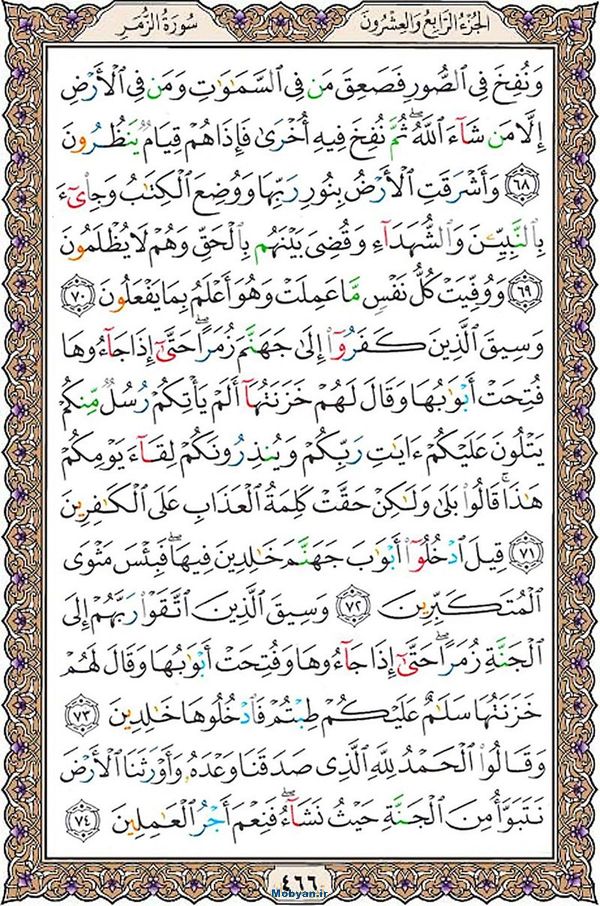 سُورَةُ الزُّمَرِ الجُزْءُ الرَّابِعُ وَالعِشْرُونَ
وَنُفِخَ فِي ٱلصُّورِ فَصَعِقَ مَن فِي ٱلسَّمَٰوَٰتِ وَمَن فِي ٱلْأَرْضِ
إِلَّا مَن شَآءَ ٱللَّهُۖ ثُمَّ نُفِخَ فِيهِ أُخْرَىٰ فَإِذَا هُمْ قِيَامٌ يَنظُرُونَ
﴿٦٨﴾ وَأَشْرَقَتِ ٱلْأَرْضُ بِنُورِ رَبِّهَا وَوُضِعَ ٱلْكِتَٰبُ وَجِا۟ىٓءَ
بِٱلنَّبِيِّۦنَ وَٱلشُّهَدَآءِ وَقُضِيَ بَيْنَهُم بِٱلْحَقِّ وَهُمْ لَا يُظْلَمُونَ
﴿٦٩﴾ وَوُفِّيَتْ كُلُّ نَفْسٍ مَّا عَمِلَتْ وَهُوَ أَعْلَمُ بِمَا يَفْعَلُونَ ﴿٧٠﴾
وَسِيقَ ٱلَّذِينَ كَفَرُوٓا۟ إِلَىٰ جَهَنَّمَ زُمَرًاۖ حَتَّىٰٓ إِذَا جَآءُوهَا
فُتِحَتْ أَبْوَٰبُهَا وَقَالَ لَهُمْ خَزَنَتُهَآ أَلَمْ يَأْتِكُمْ رُسُلٌ مِّنكُمْ
يَتْلُونَ عَلَيْكُمْ ءَايَٰتِ رَبِّكُمْ وَيُنذِرُونَكُمْ لِقَآءَ يَوْمِكُمْ
هَٰذَاۚ قَالُوا۟ بَلَىٰ وَلَٰكِنْ حَقَّتْ كَلِمَةُ ٱلْعَذَابِ عَلَى ٱلْكَٰفِرِينَ
﴿٧١﴾ قِيلَ ٱدْخُلُوٓا۟ أَبْوَٰبَ جَهَنَّمَ خَٰلِدِينَ فِيهَاۖ فَبِئْسَ مَثْوَى
ٱلْمُتَكَبِّرِينَ ﴿٧٢﴾ وَسِيقَ ٱلَّذِينَ ٱتَّقَوْا۟ رَبَّهُمْ إِلَى
ٱلْجَنَّةِ زُمَرًاۖ حَتَّىٰٓ إِذَا جَآءُوهَا وَفُتِحَتْ أَبْوَٰبُهَا وَقَالَ لَهُمْ
خَزَنَتُهَا سَلَٰمٌ عَلَيْكُمْ طِبْتُمْ فَٱدْخُلُوهَا خَٰلِدِينَ ﴿٧٣﴾
وَقَالُوا۟ ٱلْحَمْدُ لِلَّهِ ٱلَّذِي صَدَقَنَا وَعْدَهُۥ وَأَوْرَثَنَا ٱلْأَرْضَ
نَتَبَوَّأُ مِنَ ٱلْجَنَّةِ حَيْثُ نَشَآءُۖ فَنِعْمَ أَجْرُ ٱلْعَٰمِلِينَ ﴿٧٤﴾
٤٦٦
Mobyan.ir